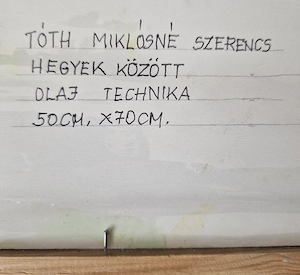 TÓTH MIKLÓSNÉ SZERENCS
HEGYEK KÖZÖTT
OLAJ TECHNIKA
50CM, X70CM.